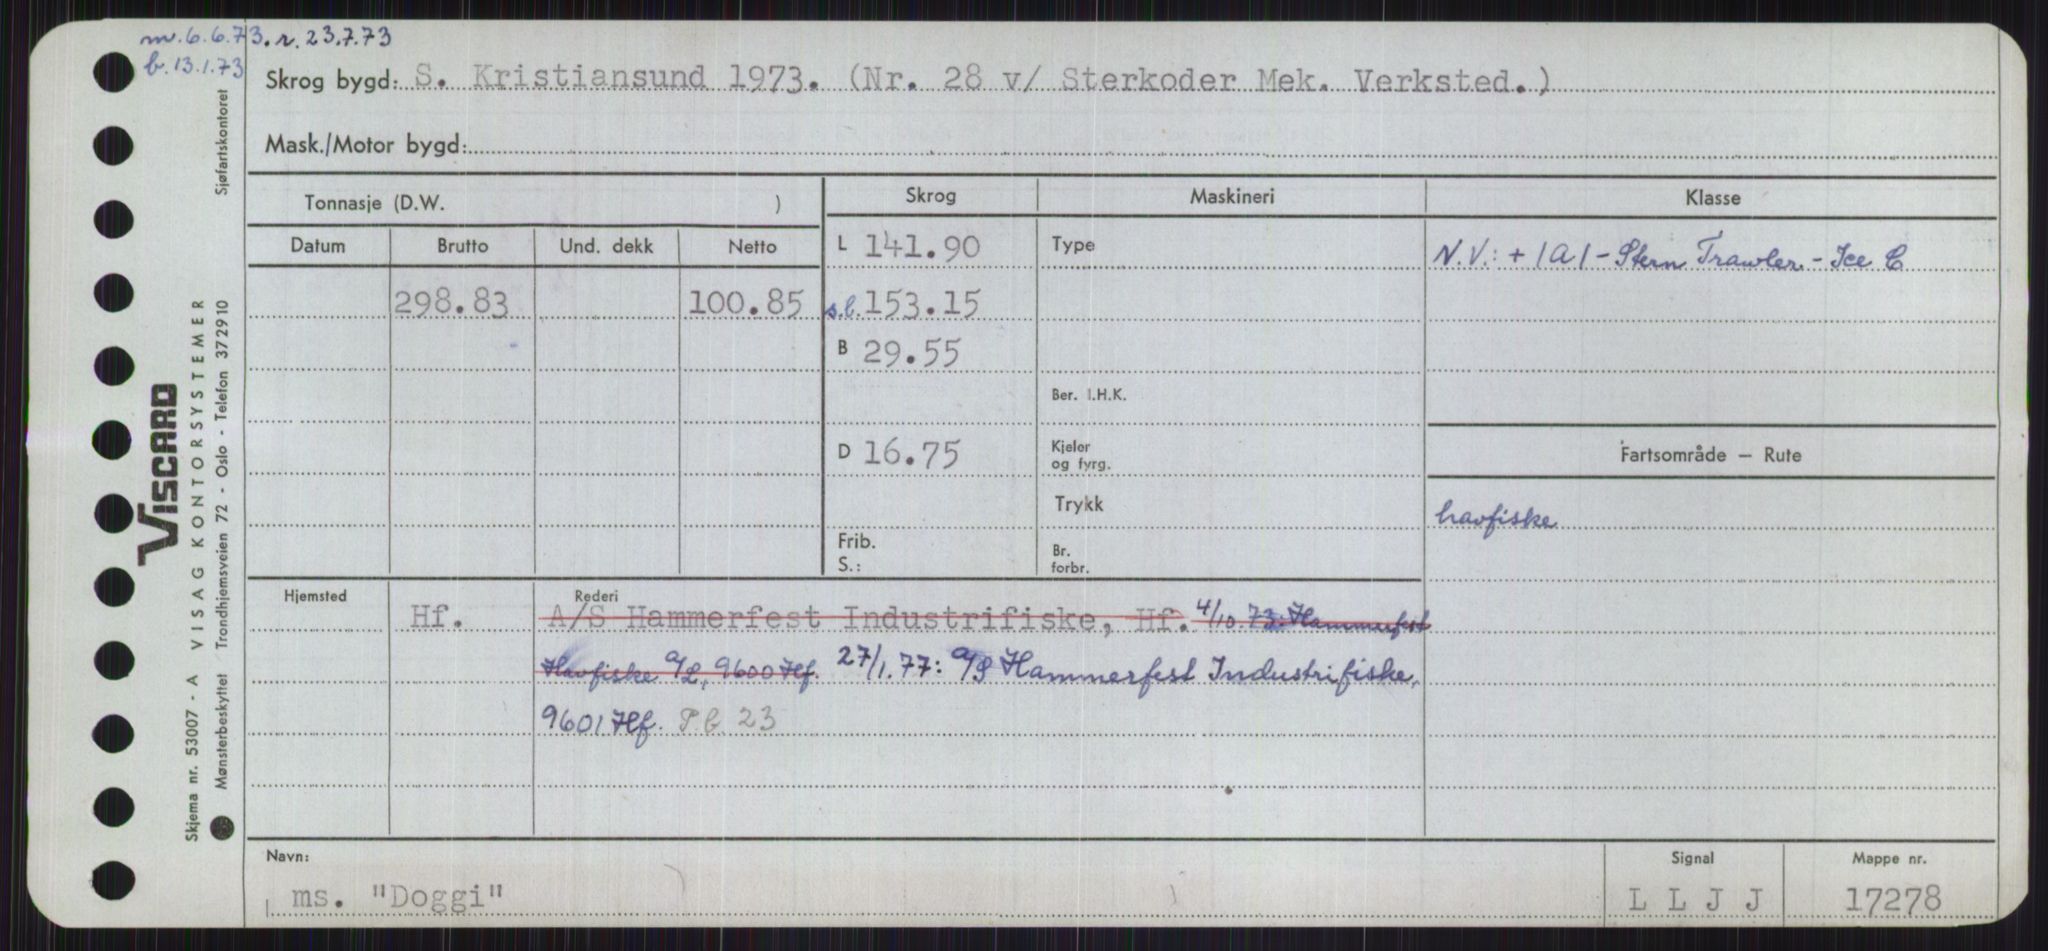 m. 6.6.73. r. 23.7.73
b. 13.1.73
Skrog bygd: S. Kristiansund 1973. (Nr. 28 v/ Sterkoder Mek. Verksted.)
Mask./Motor bygd:
Sjøfartskontoret
Tonnasje (D.W. )
Skrog
Maskineri
Klasse
Datum Brutto Und. dekk Netto
298.83 100.85
L 141.90
s.l. 153.15
B 29.55
D 16.75
Frib.
S.:
Type
Ber. I.H.K.
Kjeler
og fyrg.
Trykk
Br.
forbr.
N.V.: + 1A1 - Stern Trawler - Ice C
Fartsområde — Rute
havfiske
VISCARD
VISAG KONTORSYSTEMER
Trondhjemsveien 72 - Oslo - Telefon 372910
Skjema nr. 53007 - A
Mønsterbeskyttet
Hjemsted
Hf.
Rederi
A/S Hammerfest Industrifiske, Hf. 4/10.73: Hammerfest
Havfiske A/L, 9600 Hf. 27/1.77: A/S Hammerfest Industrifiske,
9601 Hf. P.b. 23
Navn:
ms. "Doggi"
Signal
L L J J
Mappe nr.
17278